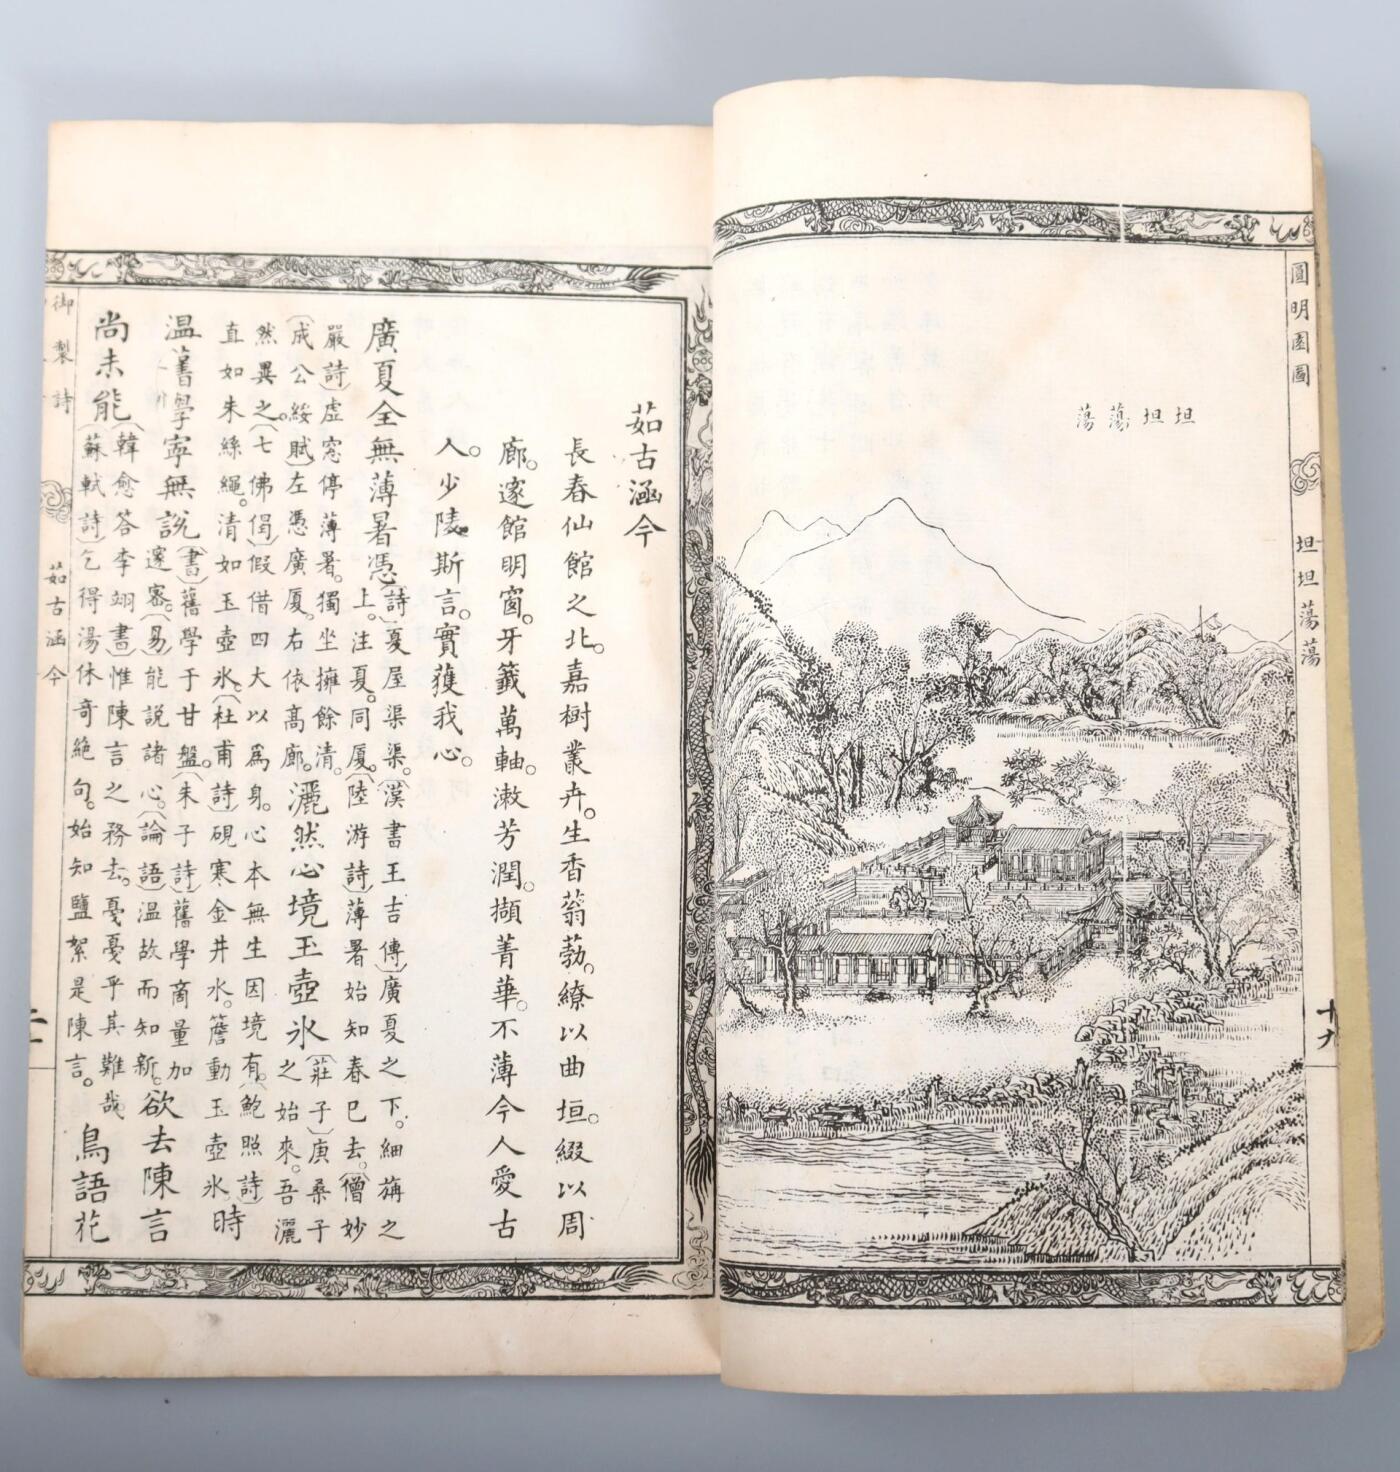 圓明園圖
坦坦蕩蕩
十九
坦坦蕩蕩
茹古涵今
長春仙館之北。嘉樹叢卉。生香蓊葧。繚以曲垣。綴以周
廊。邃館明窗。牙籤萬軸。漱芳潤。擷菁華。不薄今人愛古
人。少陵斯言。實獲我心。
廣夏全無薄暑憑
(詩)夏屋渠渠。(漢書王吉傳)廣夏之下。細旃之
上。注夏。同厦。(陸游詩)薄暑始知春巳去。(僧妙
嚴詩)虛窓停薄暑。獨坐擁餘清。
(成公綏賦)左憑廣厦。右依高廊。
灑然心境玉壺冰
(莊子)庚桑子
之始來。吾灑
然異之。(七佛偈)假借四大以爲身。心本無生因境有。(鮑照詩)
直如朱絲繩。清如玉壺冰。(杜甫詩)硯寒金井水。簷動玉壺冰。
時
温舊學寧無說
(書)舊學于甘盤。(朱子詩)舊學商量加
邃密。(易)能說諸心。(論語)温故而知新。
欲去陳言
尚未能
(韓愈答李翊書)惟陳言之務去。戞戞乎其難哉
(蘇軾詩)乞得湯休奇絶句。始知鹽絮是陳言。
鳥語花
御製詩
茹古涵今